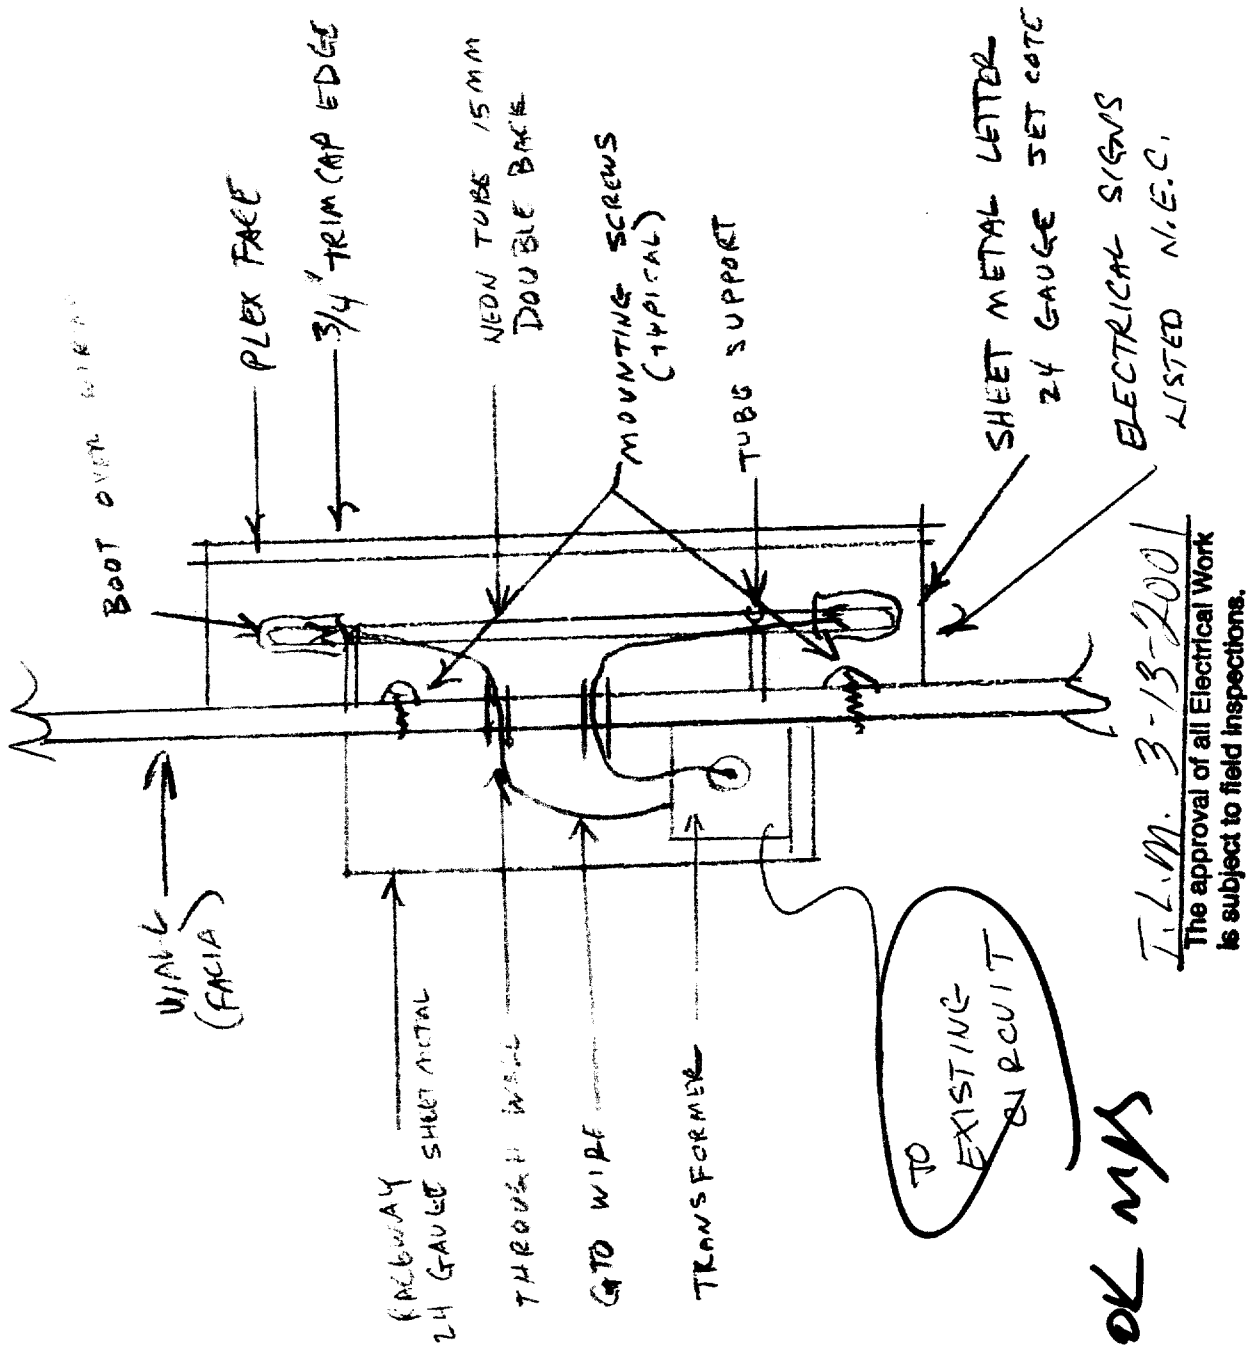 BOOT OVER
PLEX FACE
3/4" TRIM CAP EDGE
NEON TUBE 15MM
DOUBLE BACK
MOUNTING SCREWS
(TYPICAL)
TUBE SUPPORT
SHEET METAL LETTER
24 GAUGE JET COTE
ELECTRICAL SIGNS
LISTED N.E.C.
WALL
(FACIA)
RACEWAY
24 GAUGE SHEET METAL
THROUGH WALL
GTO WIRE
TRANSFORMER
TO
EXISTING
CIRCUIT
T.L.M. 3-13-2001
The approval of all Electrical Work
is subject to field inspections.
OK